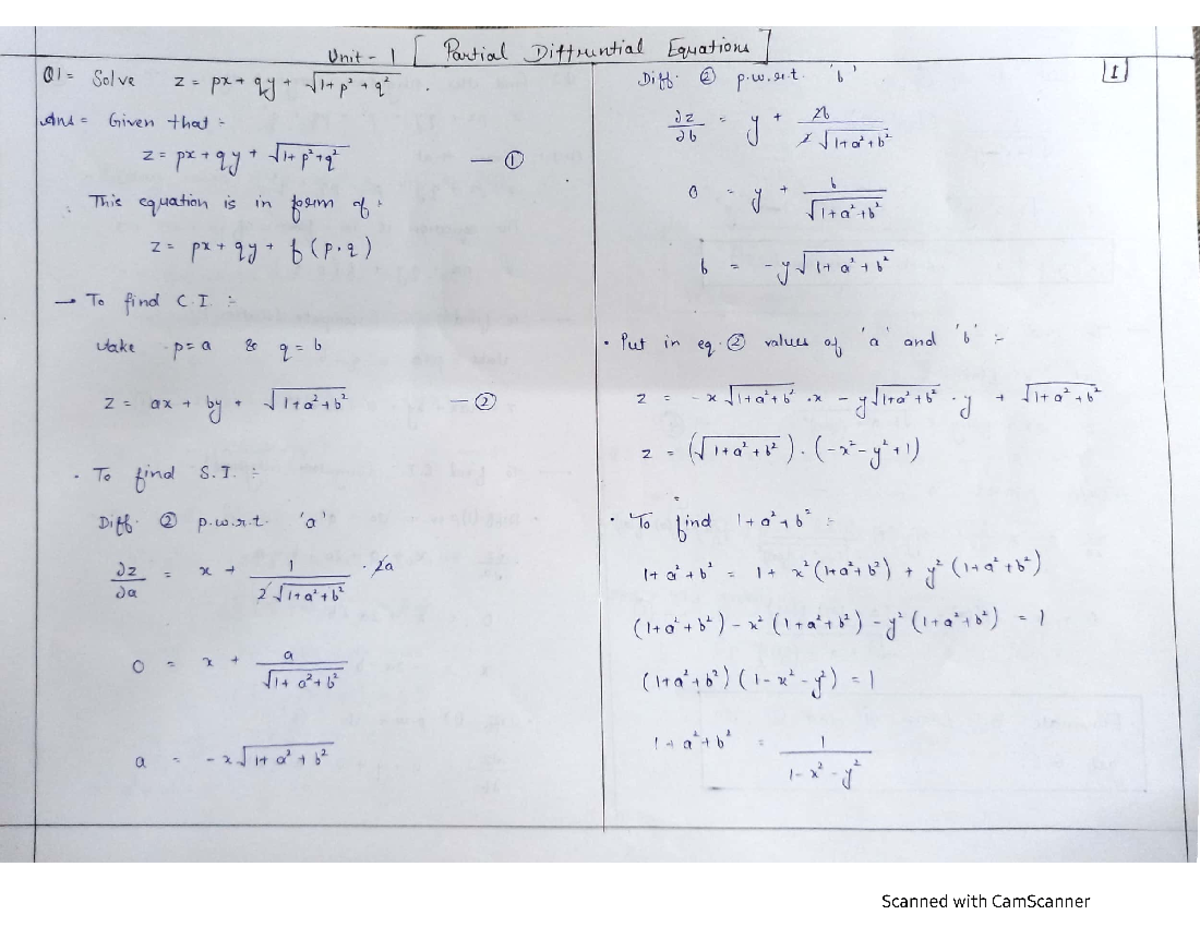 Unit - 1 [ Partial Differential Equations ]
[1]
Q1 = Solve z = px + qy + √(1+p²+q²) .
Ans = Given that :-
z = px + qy + √(1+p²+q²) — ①
This equation is in form of :
z = px + qy + f(p.q)
→ To find C.I. :-
take p = a & q = b
z = ax + by + √(1+a²+b²) — ②
• To find S.I. :-
Diff. ② p.w.r.t. 'a'
∂z/∂a = x + 1/(2√(1+a²+b²)) . 2a
0 = x + a/√(1+a²+b²)
a = -x√(1+a²+b²)
Diff. ② p.w.r.t. 'b'
∂z/∂b = y + 2b/(2√(1+a²+b²))
0 = y + b/√(1+a²+b²)
b = -y√(1+a²+b²)
• Put in eq. ② values of 'a' and 'b' :-
z = -x√(1+a²+b²) .x - y√(1+a²+b²) . y + √(1+a²+b²)
z = (√(1+a²+b²)) . (-x²-y²+1)
• To find 1+a²+b² :-
1+a²+b² = 1 + x²(1+a²+b²) + y²(1+a²+b²)
(1+a²+b²) - x²(1+a²+b²) - y²(1+a²+b²) = 1
(1+a²+b²)(1-x²-y²) = 1
1+a²+b² = 1/(1-x²-y²)
Scanned with CamScanner